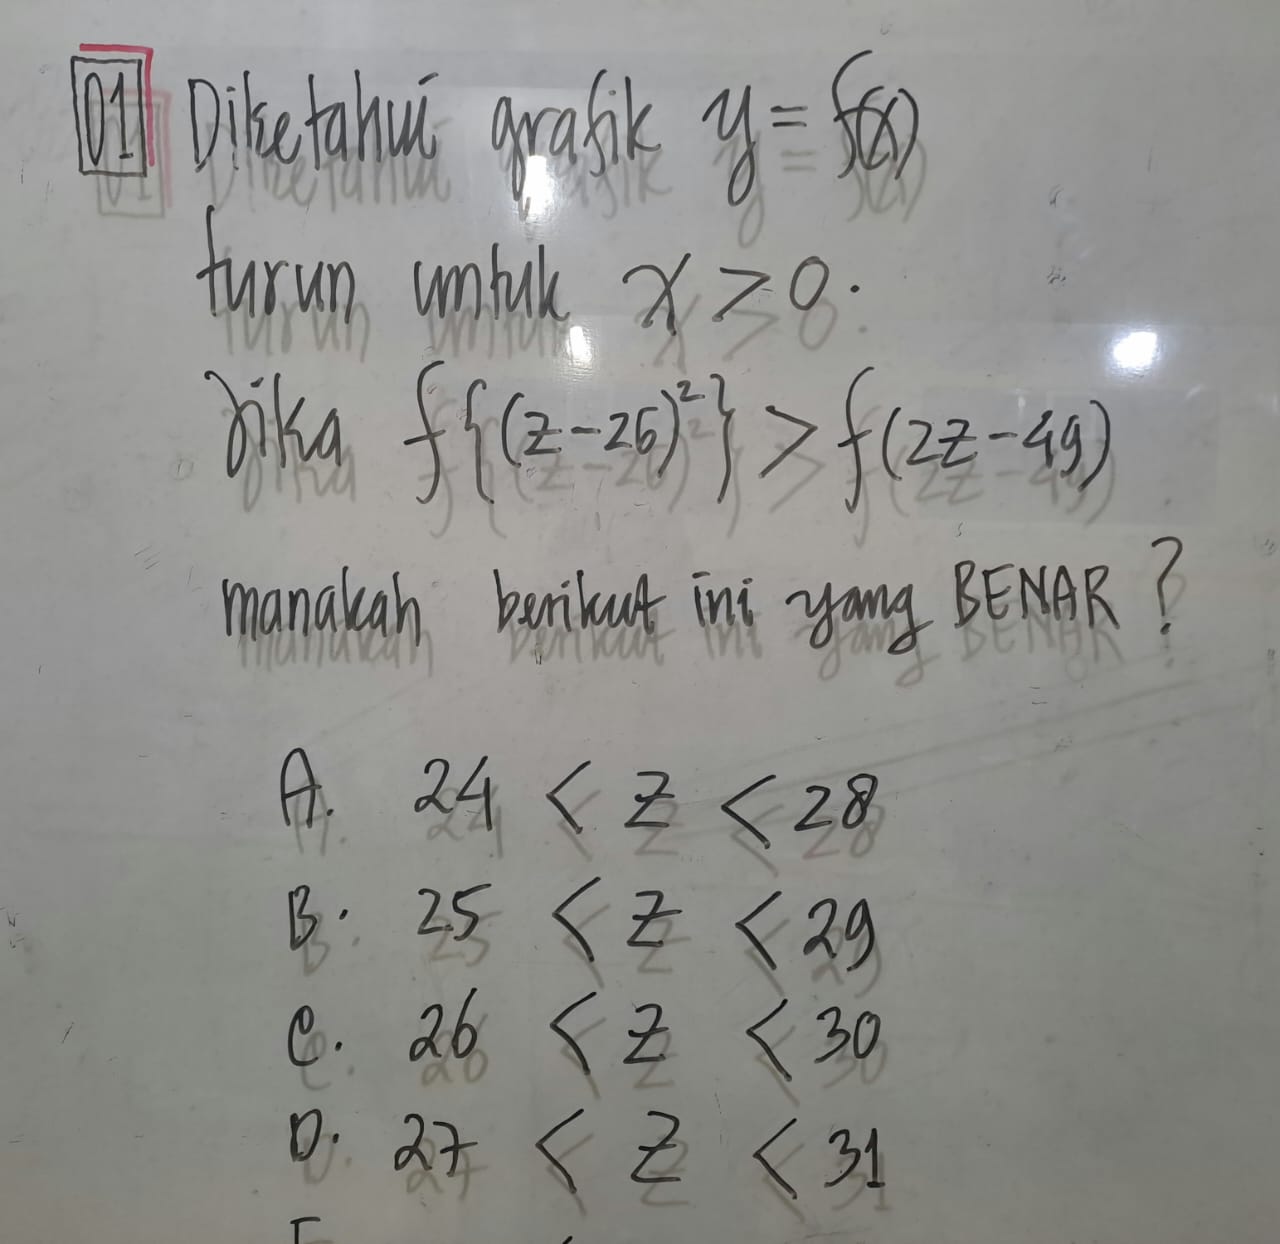 01 Diketahui grafik y = f(x)
turun untuk x > 0.
Jika f{(z-26)²} > f(2z-49)
manakah berikut ini yang BENAR ?
A. 24 < z < 28
B. 25 < z < 29
C. 26 < z < 30
D. 27 < z < 31